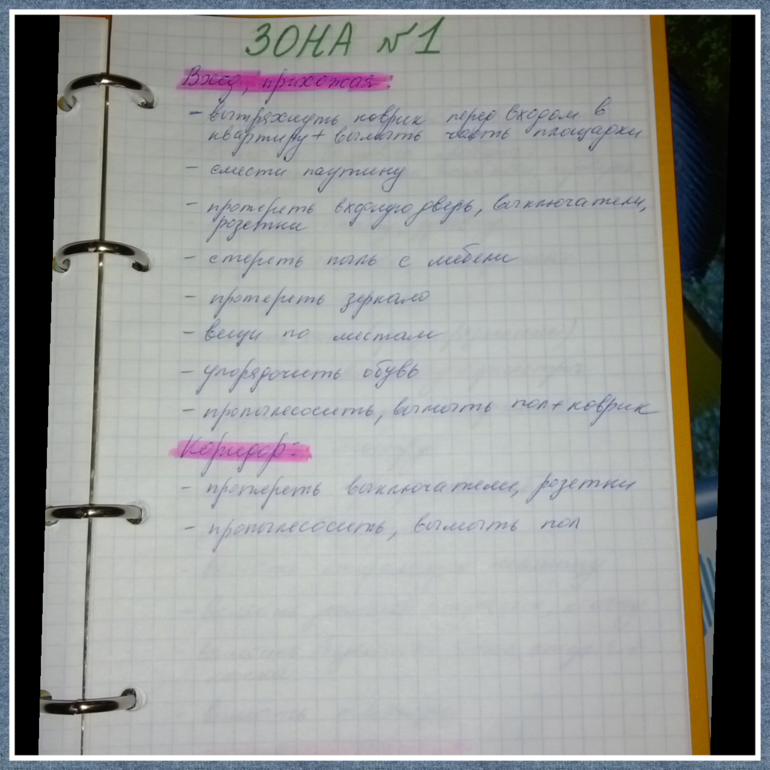 ЗОНА №1
Вход, прихожая:
- вытряхнуть коврик перед входом в
квартиру + вымыть часть площадки
- смести паутину
- протереть входную дверь, выключатели,
розетки
- стереть пыль с мебели
- протереть зеркало
- вещи по местам
- упорядочить обувь
- пропылесосить, вымыть пол + коврик
Коридор:
- протереть выключатели, розетки
- пропылесосить, вымыть пол